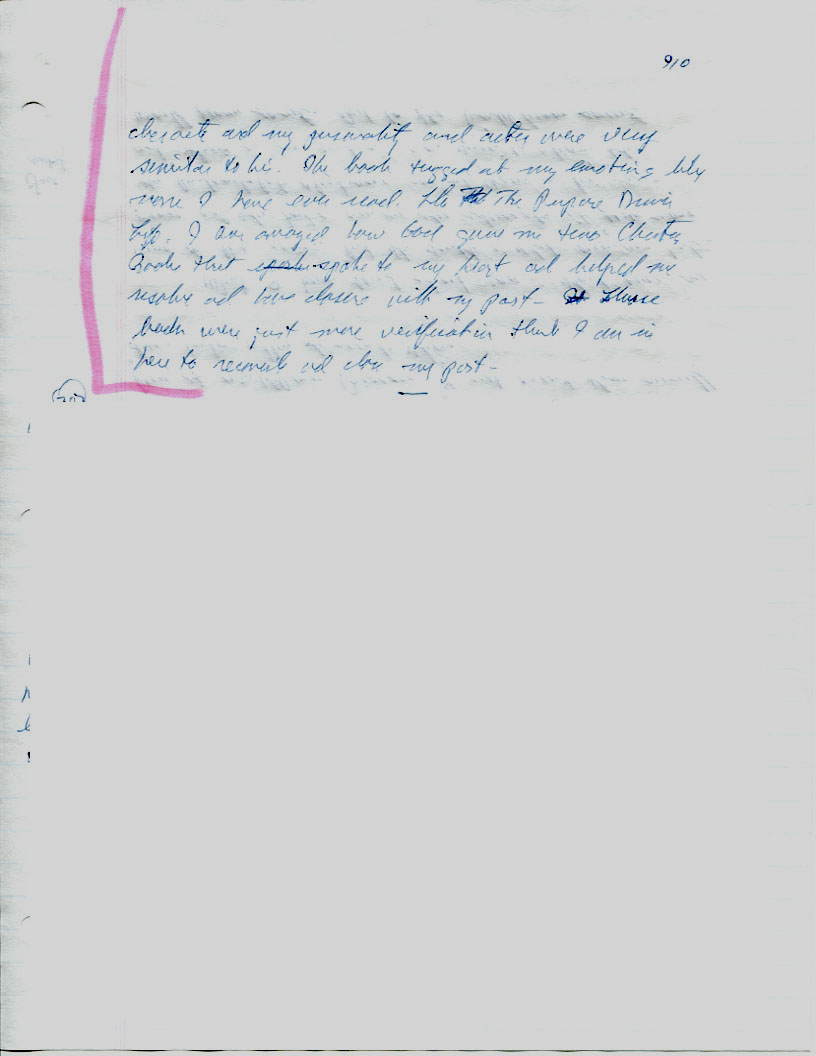 910
character and my personality and actions were very
similar to his. The book tugged at my emotions like
none I have ever read. Like The Purpose Driven
Life. I am amazed how God gave me these
Books that spoke to my heart and helped me
resolve and have closure with my past - these
books were just more verification that I am in
here to reconcile and close my past -